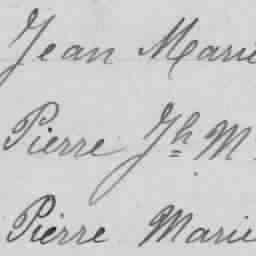 Jean Marie
Pierre Jh M
Pierre Marie